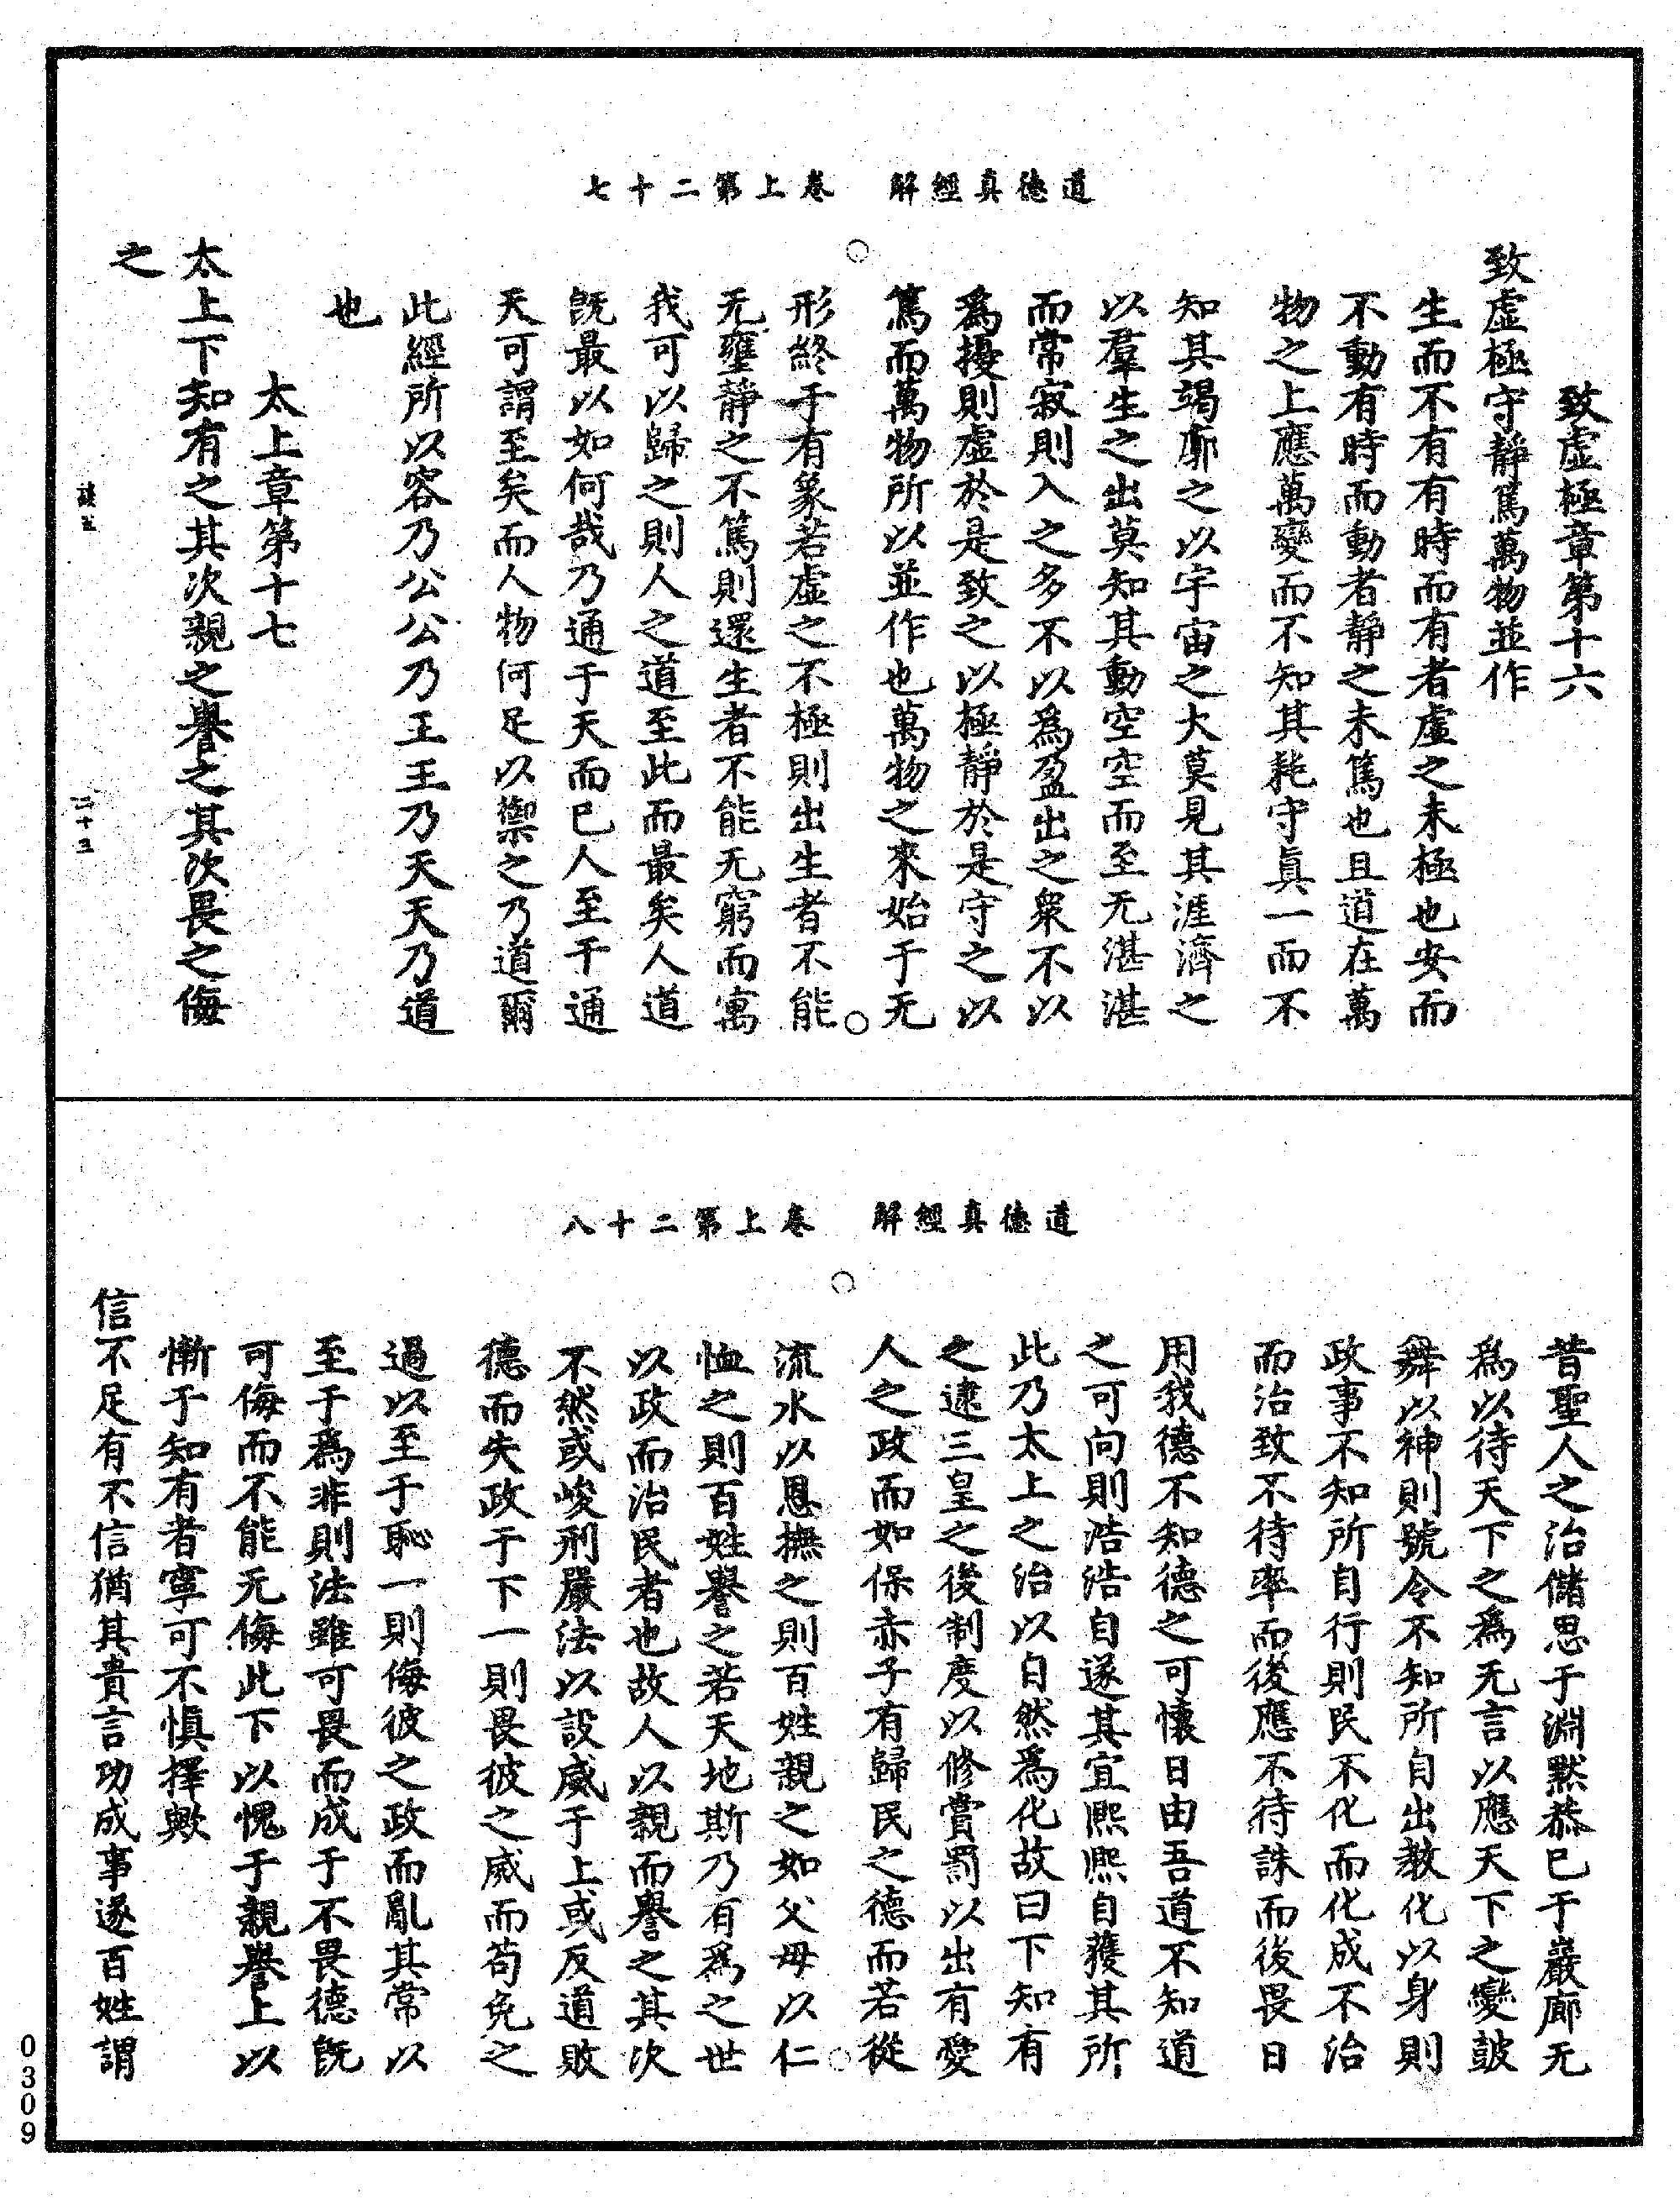 道德真經解　卷上第二十七
致虛極章第十六
致虛極守靜篤萬物並作
生而不有有時而有者虛之未極也安而
不動有時而動者靜之未篤也且道在萬
物之上應萬變而不知其耗守真一而不
知其竭廓之以宇宙之大莫見其涯濟之
以羣生之出莫知其動空空而至无湛湛
而常寂則入之多不以爲盈出之衆不以
爲擾則虛於是致之以極靜於是守之以
篤而萬物所以並作也萬物之來始于无
形終于有象若虛之不極則出生者不能
无壅靜之不篤則還生者不能无窮而寓
我可以歸之則人之道至此而最矣人道
旣最以如何哉乃通于天而已人至于通
天可謂至矣而人物何足以禦之乃道爾
此經所以容乃公公乃王王乃天天乃道
也
太上章第十七
太上下知有之其次親之譽之其次畏之侮
之
二十三
道德真經解　卷上第二十八
昔聖人之治儲思于淵默恭已于巖廊无
爲以待天下之爲无言以應天下之變皷
舞以神則號令不知所自出教化以身則
政事不知所自行則民不化而化成不治
而治致不待率而後應不待誅而後畏日
用我德不知德之可懷日由吾道不知道
之可向則浩浩自遂其宜熙熙自獲其所
此乃太上之治以自然爲化故曰下知有
之逮三皇之後制度以修賞罰以出有愛
人之政而如保赤子有歸民之德而若從
流水以恩撫之則百姓親之如父母以仁
恤之則百姓譽之若天地斯乃有爲之世
以政而治民者也故人以親而譽之其次
不然或峻刑嚴法以設威于上或反道敗
德而失政于下一則畏彼之威而苟免之
過以至于恥一則侮彼之政而亂其常以
至于爲非則法雖可畏而成于不畏德旣
可侮而不能无侮此下以愧于親譽上以
慚于知有者寧可不愼擇歟
信不足有不信猶其貴言功成事遂百姓謂
0309